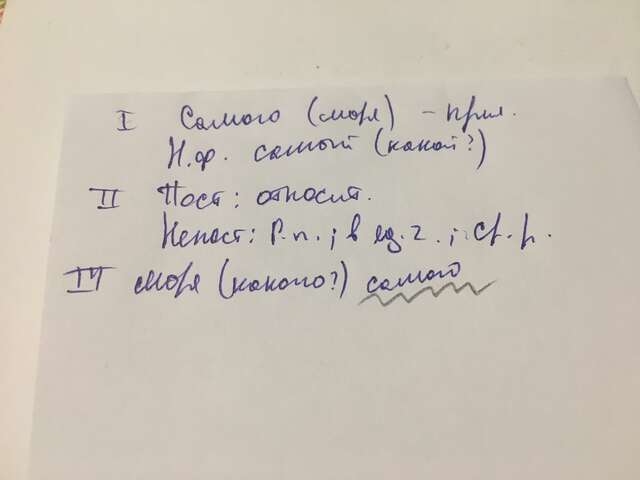 I Самого (моря) - прил.
Н.ф. самый (какой?)
II Пост: относит.
Непост: Р.п.; в ед.ч.; ср.р.
III моря (какого?) самого